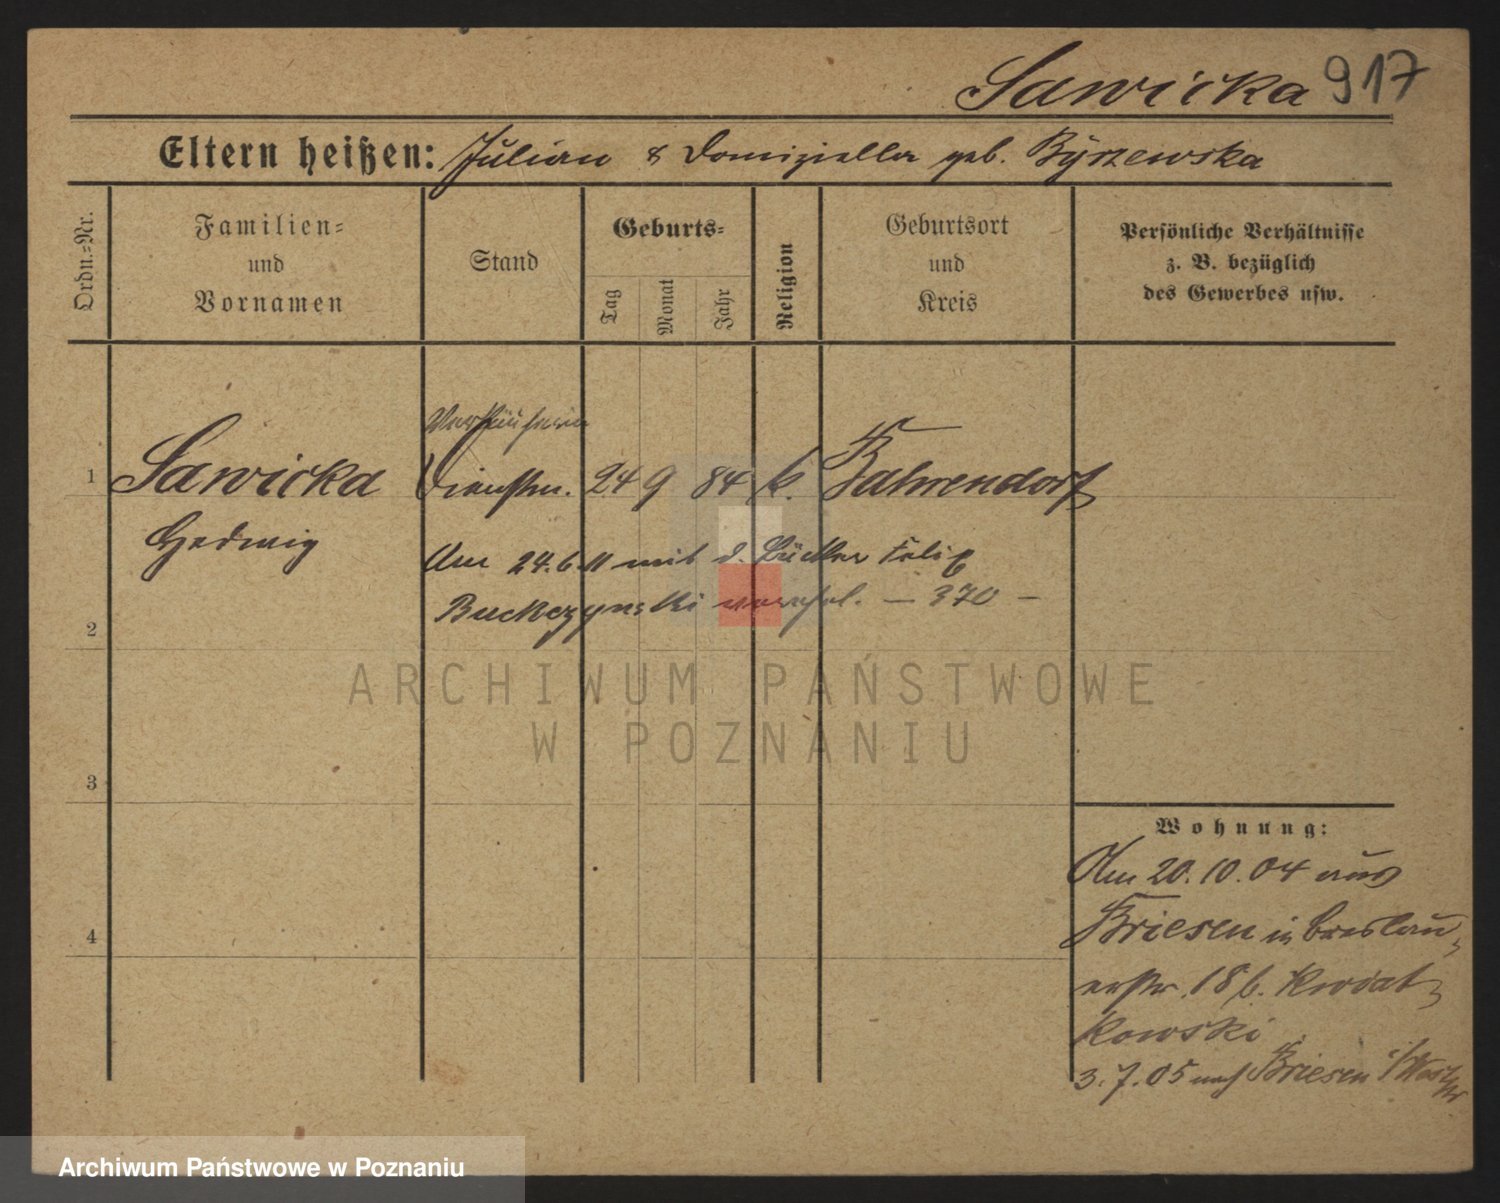 Sawicka 917
Eltern heißen: Julian & Domiziella geb. Byszewska
Ordn.-Nr.
Familien-
und
Vornamen
Stand
Geburts-
Tag
Monat
Jahr
Religion
Geburtsort
und
Kreis
Persönliche Verhältnisse
z. B. bezüglich
des Gewerbes usw.
Verkäuferin
1 Sawicka Dienstm. 24 9 84 k. Bahrendorf
Hedwig
Am 24.6.11 mit d. Felix
2 Buckczynski verehel. – 370 –
3
4
Wohnung:
Am 20.10.04 aus
Briesen in Breslau-
erstr. 18 b. Kwiat-
kowski
3.7.05 nach Briesen i/Westpr
ARCHIWUM PAŃSTWOWE
W POZNANIU
Archiwum Państwowe w Poznaniu